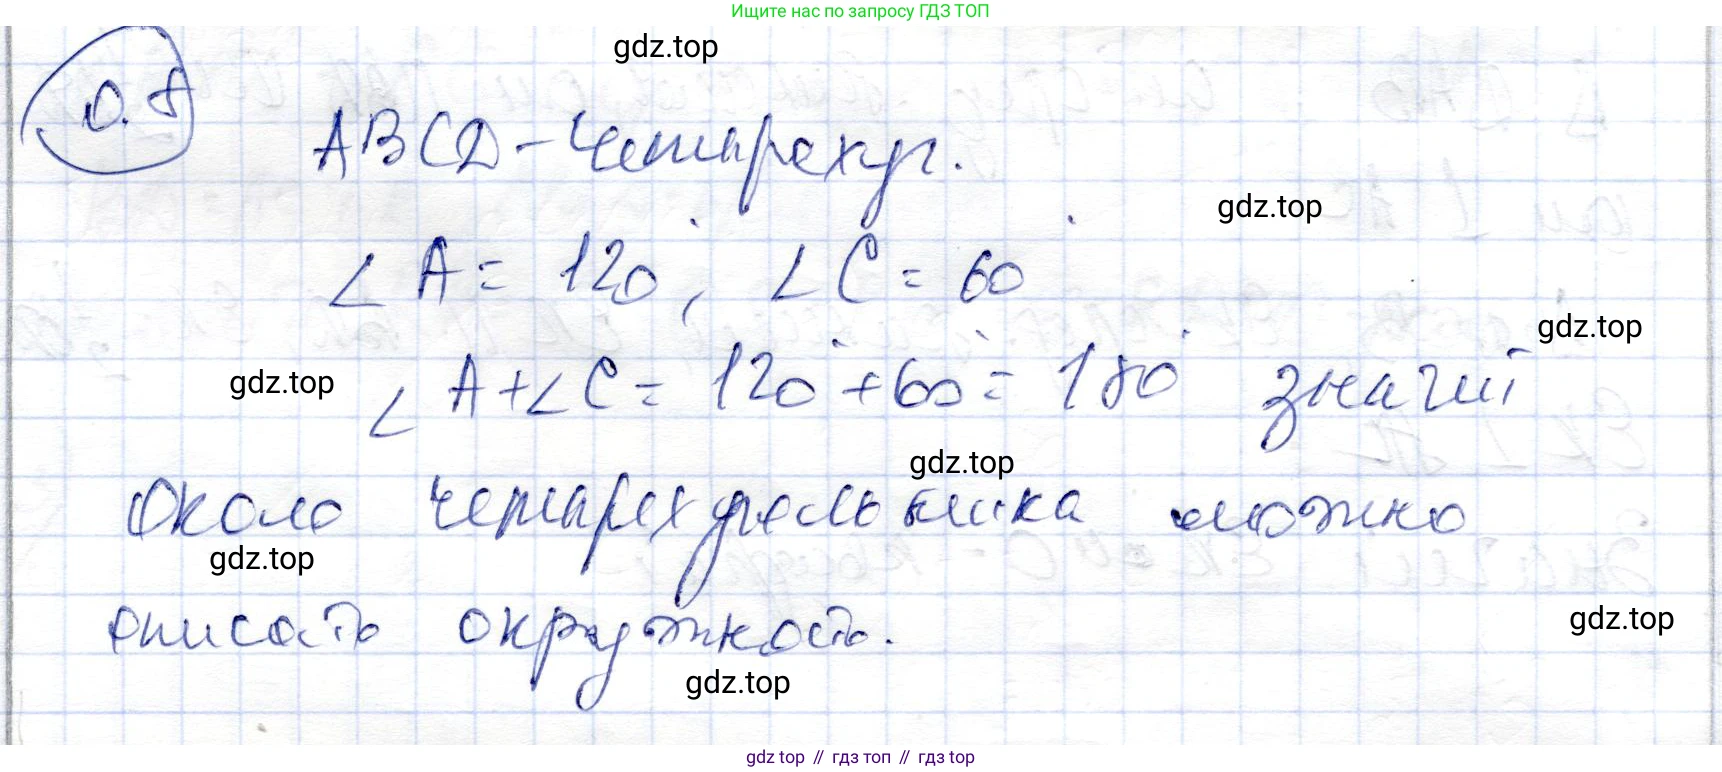 Ищите нас по запросу ГДЗ ТОП
gdz.top
0.8
ABCD - четырехуг.
gdz.top
∠A = 120°, ∠C = 60°
gdz.top
gdz.top
∠A + ∠C = 120° + 60° = 180° значит
gdz.top
Около четырехугольника можно
gdz.top
описать окружность.
gdz.top
gdz.top
gdz top // гдз топ // гдз top